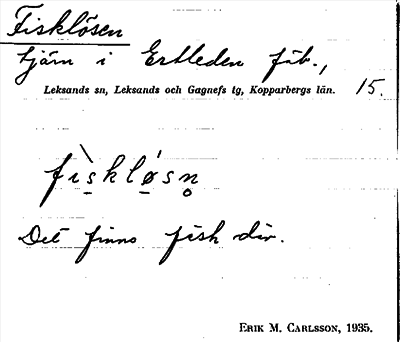 Fisklösen
tjärn i Ertleden fäb.,
Leksands sn, Leksands och Gagnefs tg, Kopparbergs län. 15.
fìs̱klǿ̱sn̥
Det finns fisk där.
ERIK M. CARLSSON, 1935.